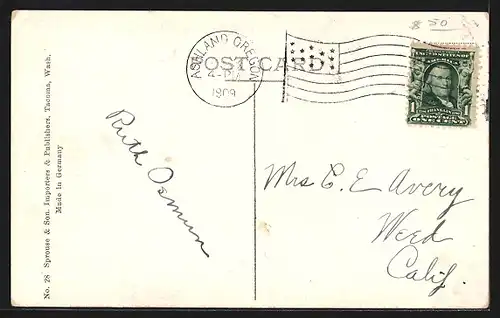 8 50
POST CARD
ASHLAND OREGON
2-PM
1909
FRANKLIN
1 1
POSTAGE
ONE CENT
No. 28 Sprouse & Son. Importers & Publishers. Tacoma, Wash.
Made in Germany
Ruth Osmun
Mrs C. E Avery
Weed
Calif.